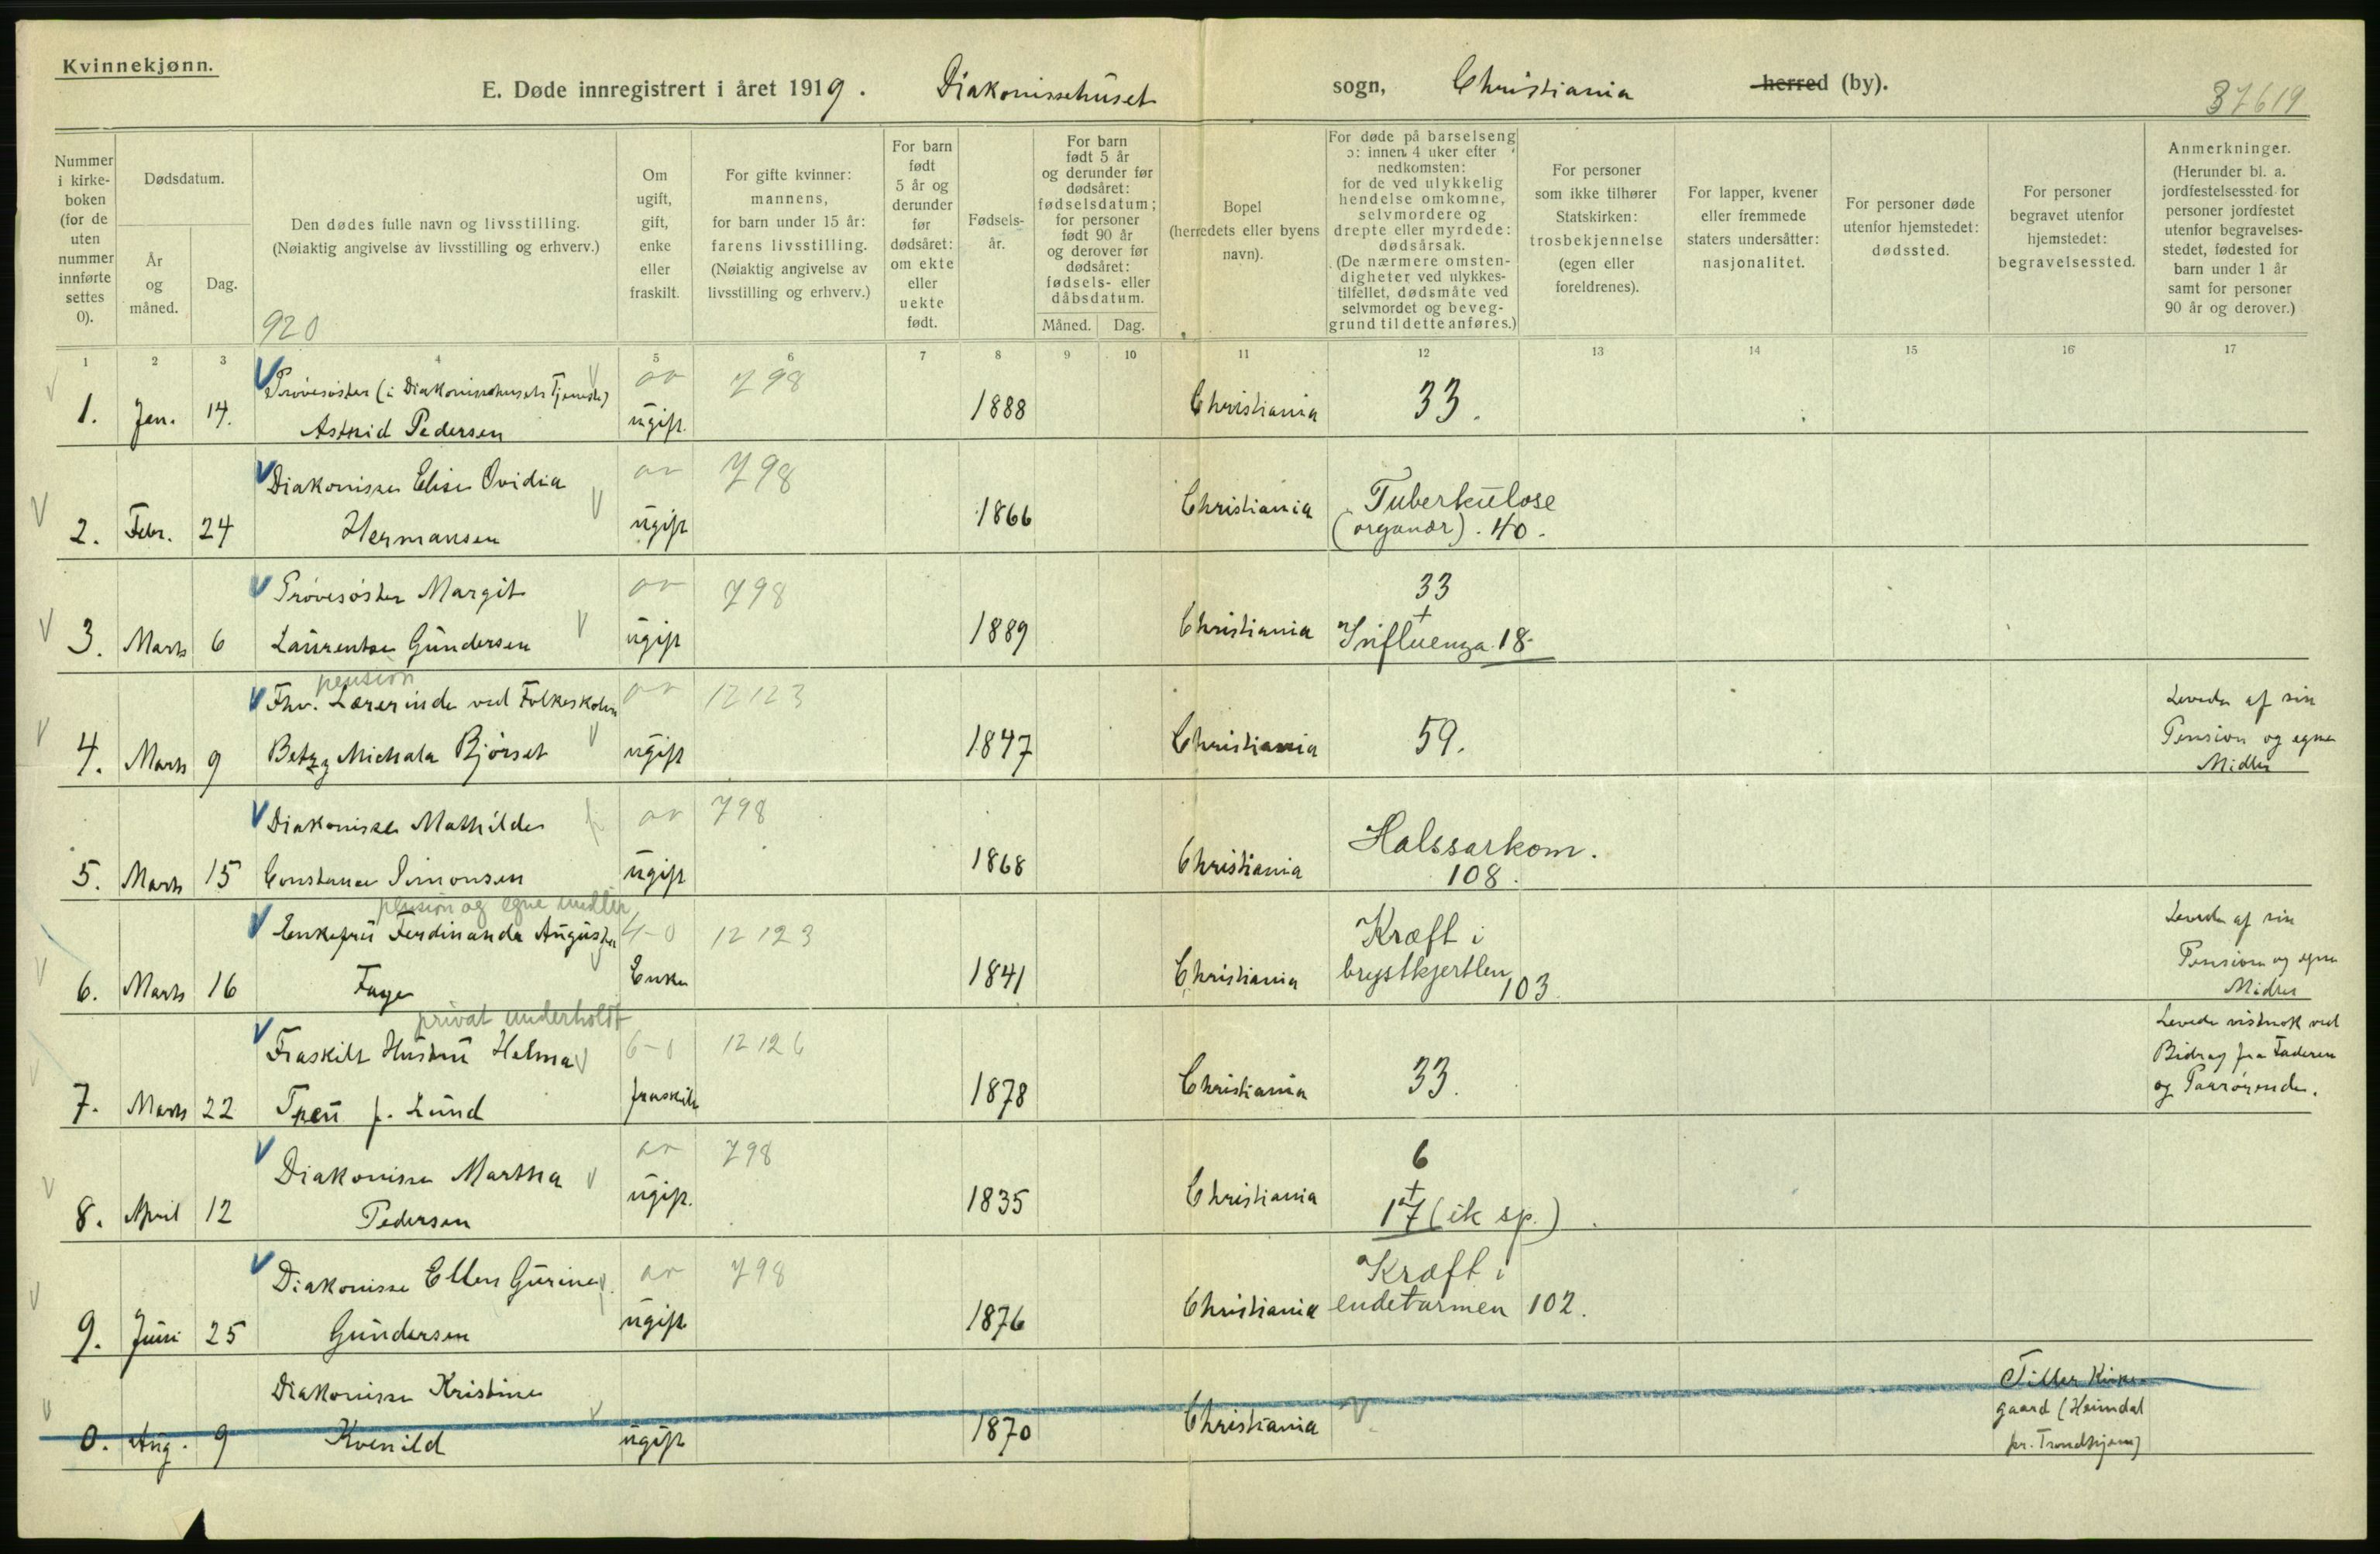 Kvinnekjønn.
E. Døde innregistrert i året 1919. Diakonissehuset sogn, Christiania herred (by).
37619
Nummer i kirke-boken (for de uten nummer innførte settes 0).
Dødsdatum.
År og måned.
Dag.
Den dødes fulle navn og livsstilling.
(Nøiaktig angivelse av livsstilling og erhverv.)
920
Om ugift, gift, enke eller fraskilt.
For gifte kvinner: mannens, for barn under 15 år: farens livsstilling.
(Nøiaktig angivelse av livsstilling og erhverv.)
For barn født 5 år og derunder før dødsåret: om ekte eller uekte født.
Fødsels-år.
For barn født 5 år og derunder før dødsåret: fødselsdatum; for personer født 90 år og derover før dødsåret: fødsels- eller dåbsdatum.
Måned. Dag.
Bopel (herredets eller byens navn).
For døde på barselseng ɔ: innen 4 uker efter nedkomsten: for de ved ulykkelig hendelse omkomne, selvmordere og drepte eller myrdede: dødsårsak.
(De nærmere omsten-digheter ved ulykkes-tilfellet, dødsmåte ved selvmordet og beveg-grund til dette anføres.)
For personer som ikke tilhører Statskirken: trosbekjennelse (egen eller foreldrenes).
For lapper, kvener eller fremmede staters undersåtter: nasjonalitet.
For personer døde utenfor hjemstedet: dødssted.
For personer begravet utenfor hjemstedet: begravelsessted.
Anmerkninger.
(Herunder bl. a. jordfestelsessted for personer jordfestet utenfor begravelses-stedet, fødested for barn under 1 år samt for personer 90 år og derover.)
1 2 3 4 5 6 7 8 9 10 11 12 13 14 15 16 17
Prøvesøster (i Diakonissehusets Tjeneste) 798
1. Jan. 14. Astrid Pedersen ugift. 1888 Christiania 33.
Diakonisse Elise Ovidia 798
2. Febr. 24 Hermansen ugift 1866 Christiania Tuberkulose
(organær). 40.
Prøvesøster Margit 798 33
+
3. Marts 6 Laurentse Gundersen ugift 1889 Christiania Influenza 18.
pension
Fhv. Lærerinde ved Folkeskolen 12123 Levede af sin
4. Marts 9 Betzy Michala Bjørset ugift 1847 Christiania 59. Pension og egne
Midler
Diakonisse Mathilde 798
5. Marts 15 Constance Simonsen ugift 1868 Christiania Halssarkom.
108.
pension og egne midler
Enkefru Ferdinanda Augusta 4-0 12123 Kræft i Levede af sin
6. Marts 16 Faye Enke 1841 Christiania brystkjertlen 103 Pension og egne
Midler
privat underholdt
Fraskilt Hustru Helma 6-0 12126 Levede vistnok ved
Bidrag fra Faderen
7. Marts 22 f. Lund fraskilt 1878 Christiania 33. og Paarørende.
Diakonisse Martha 798 6
+
8. April 12 Pedersen ugift. 1835 Christiania 17 (ik sp.)
Diakonisse Ellen Gurine 798 Kræft i
9. Juni 25 Gundersen ugift 1876 Christiania endetarmen 102.
Diakonisse Kristine Tiller Kirke-
0. Aug. 9 Kvenild ugift 1870 Christiania gaard (Heimdal
pr. Trondhjem)